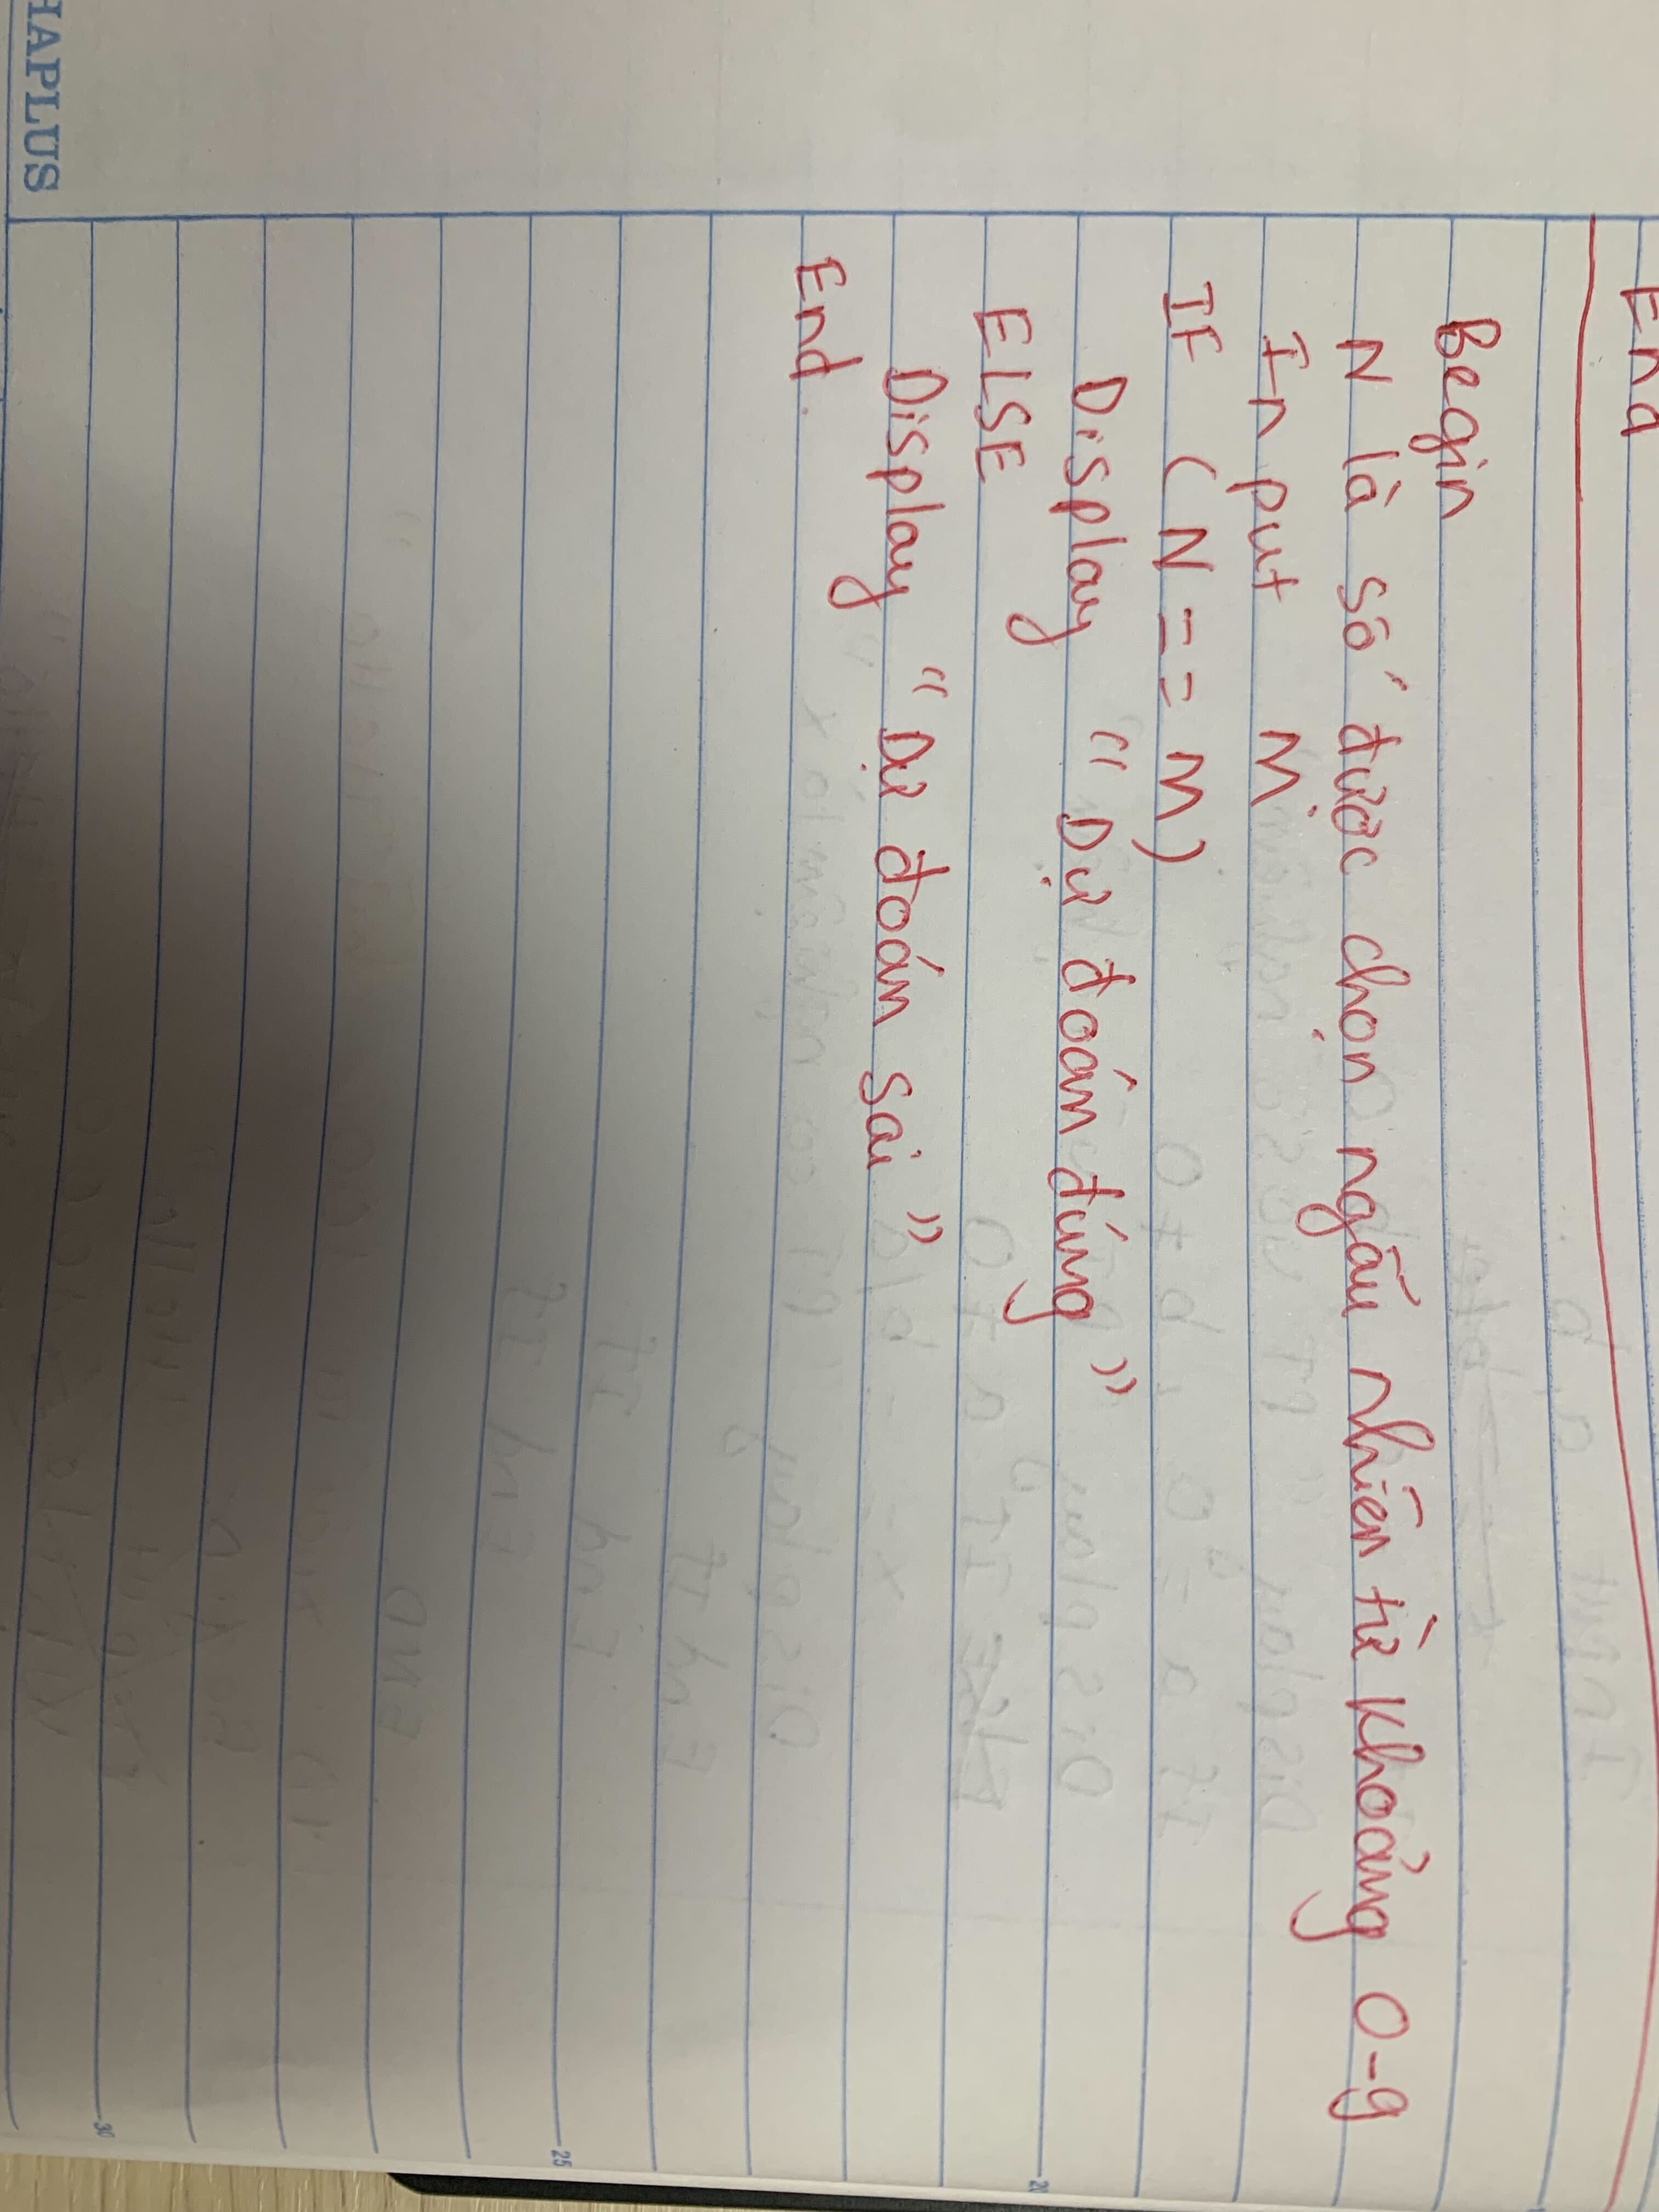 End
Begin
N là số được chọn ngẫu nhiên từ khoảng 0-9
Input M
IF (N == M)
Display "Dự đoán đúng"
ELSE
Display "Dự đoán sai"
End.
HAPLUS
20
25
30